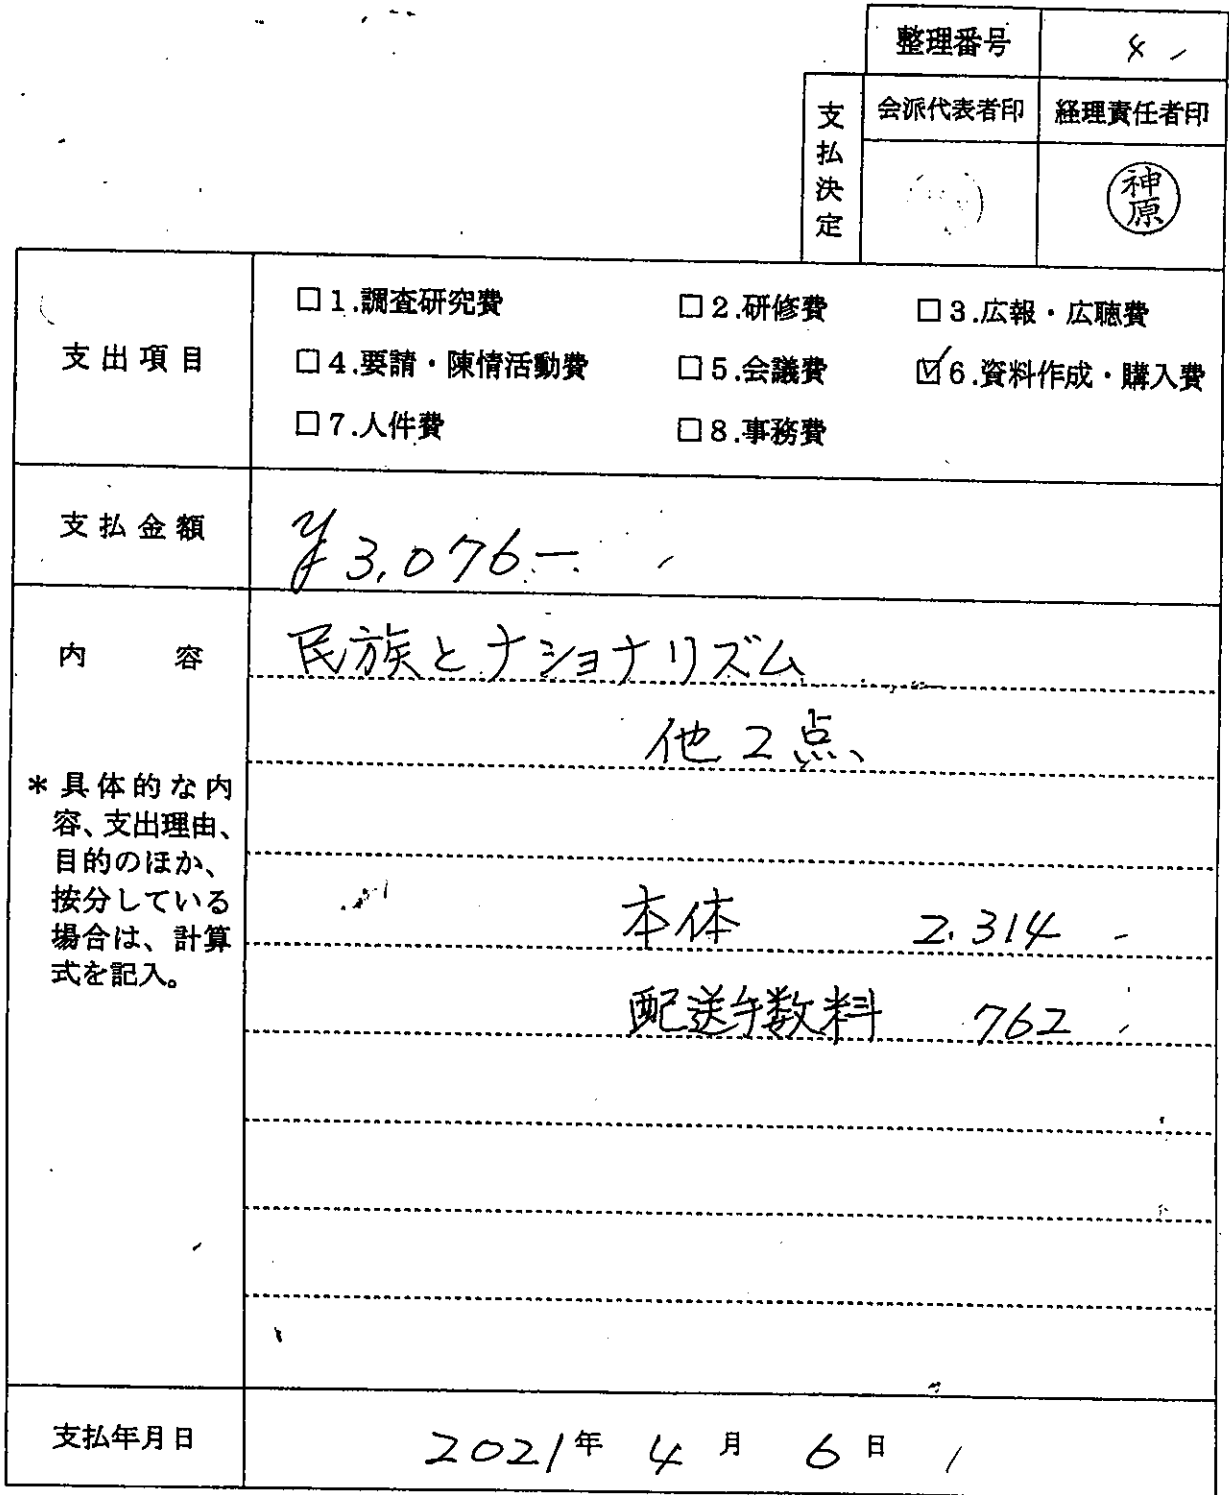 整理番号 4
支払決定
会派代表者印 経理責任者印
神原
支出項目
□1.調査研究費 □2.研修費 □3.広報・広聴費
□4.要請・陳情活動費 □5.会議費 ☑6.資料作成・購入費
□7.人件費 □8.事務費
支払金額 ¥3,076-
内容 民族とナショナリズム
他2点
*具体的な内
容、支出理由、
目的のほか、
按分している
場合は、計算
式を記入。
本体 2.314
配送手数料 762
支払年月日 2021年4月6日